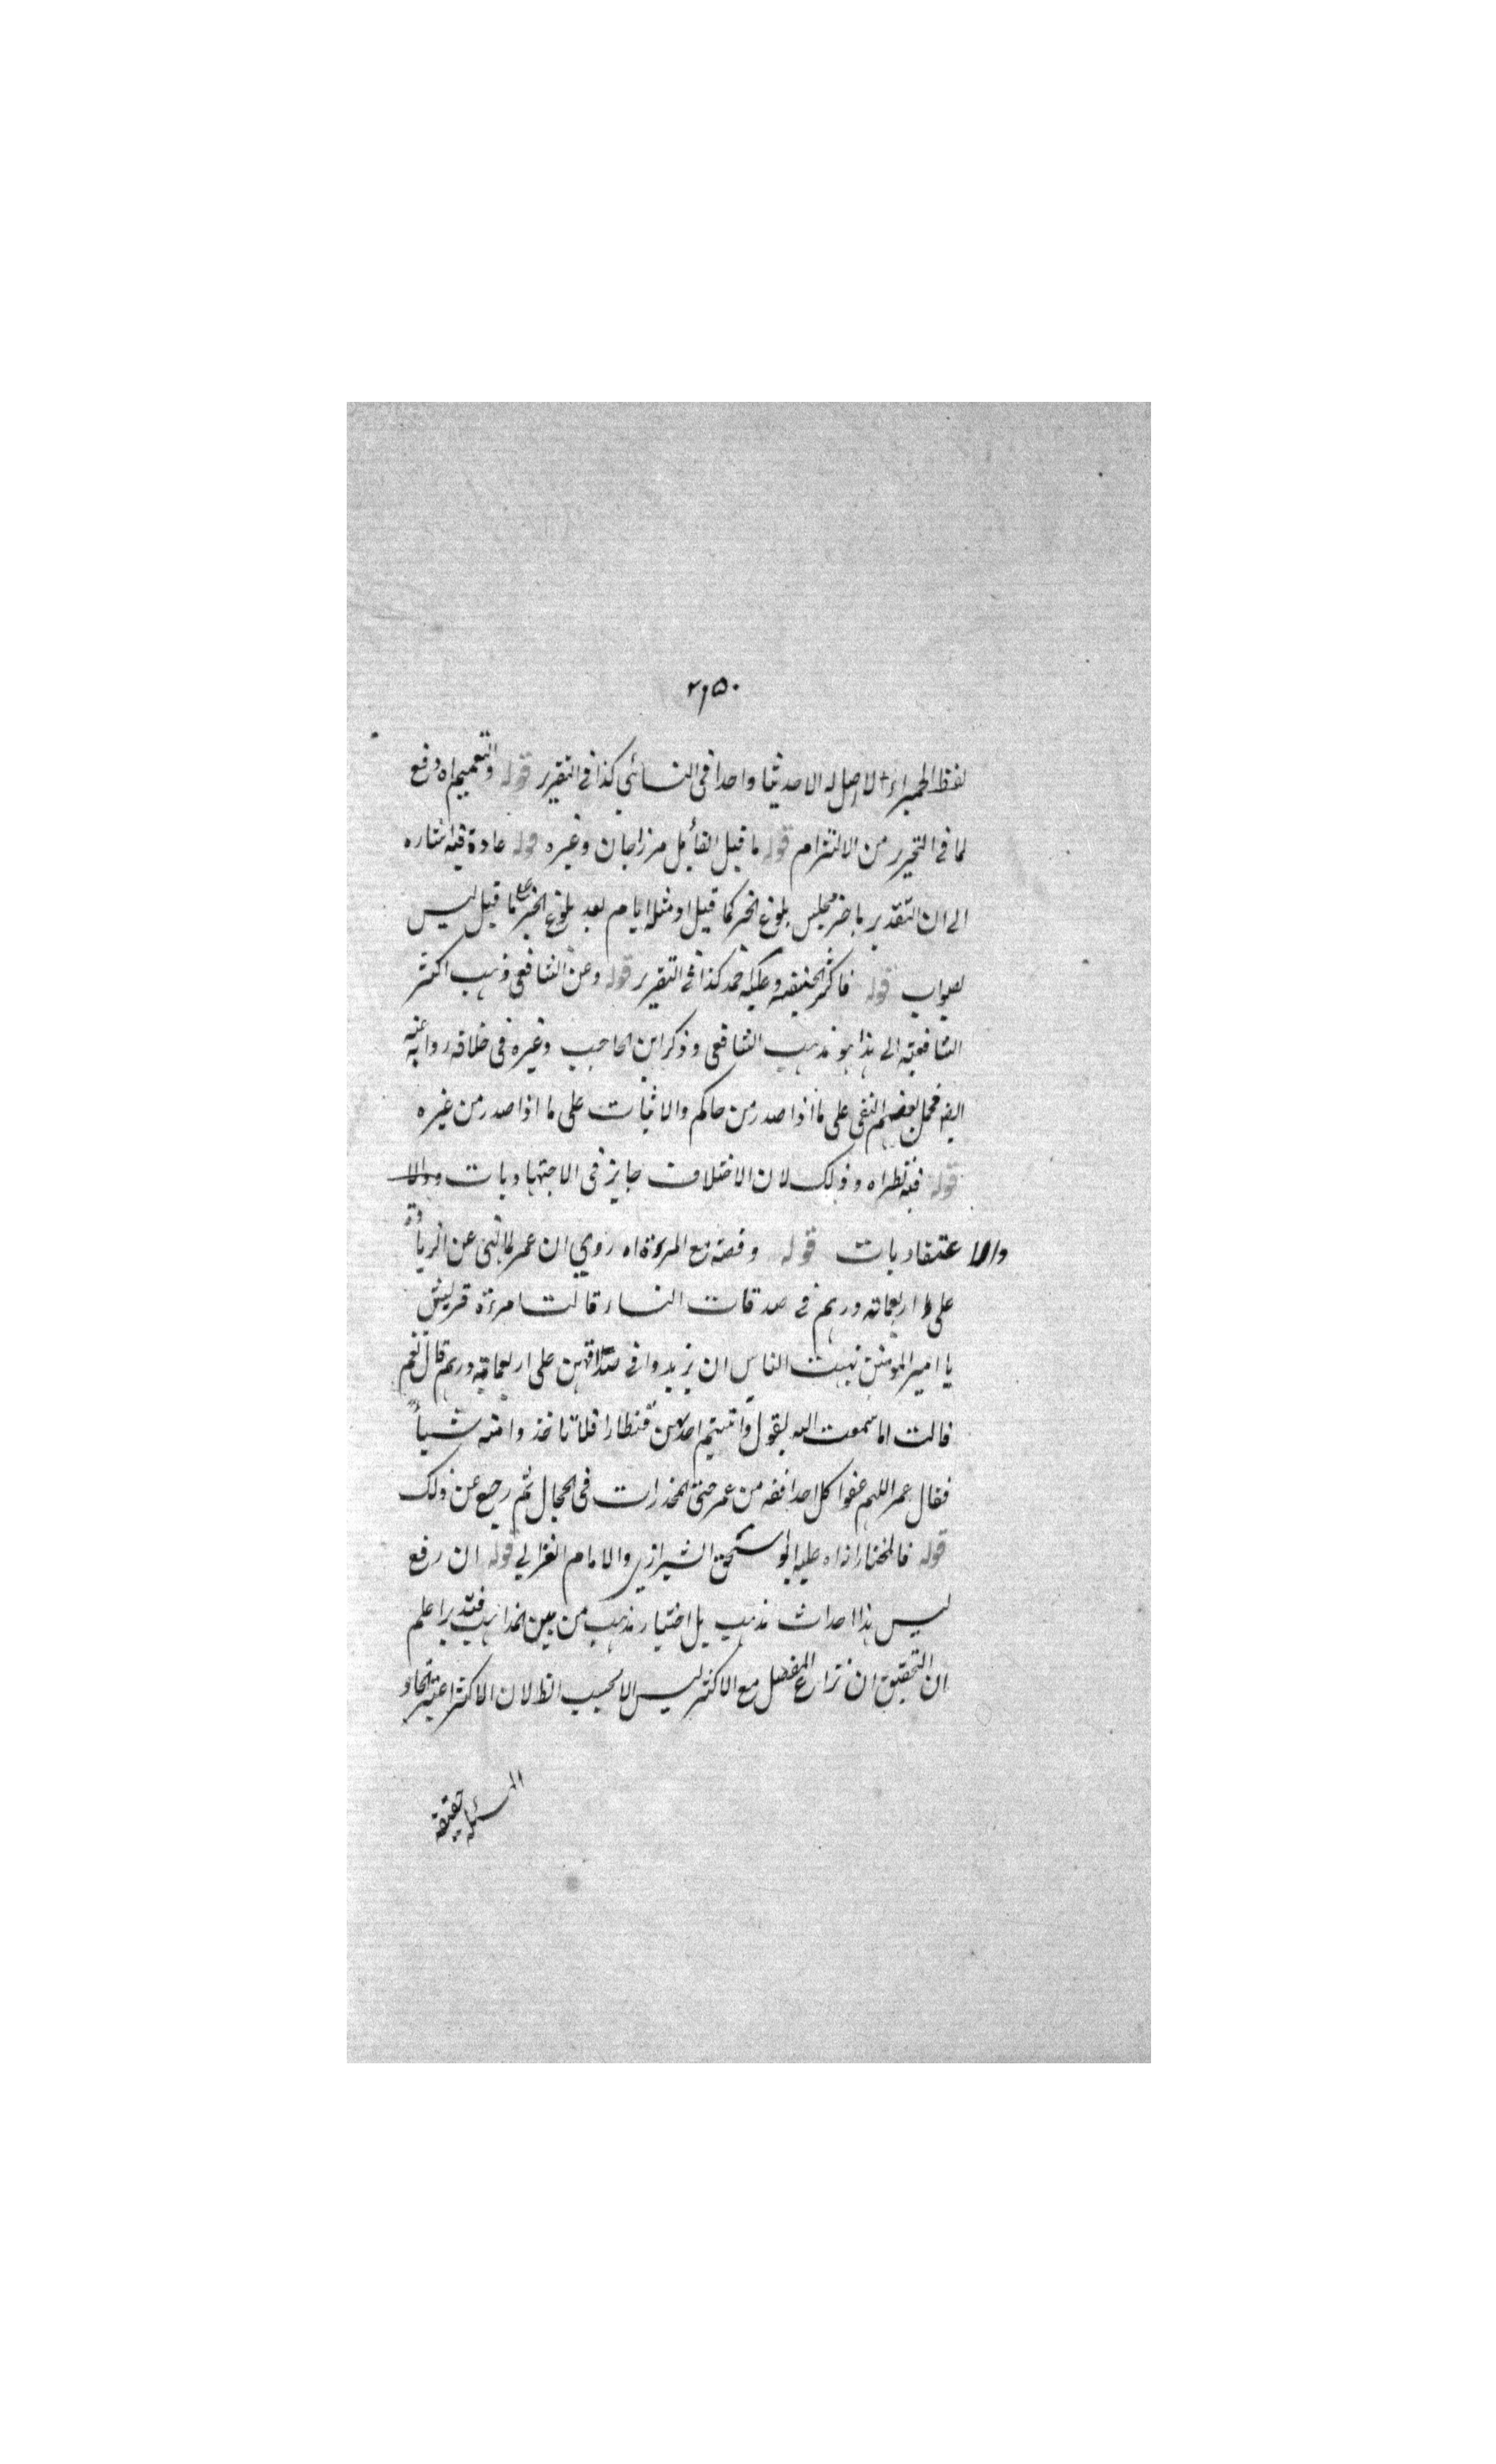 ٢٩٥٠
لفظ الحميراء لا اصل له الا حديثا واحدا فى النسائي كذا فى التقرير قوله والتعميم اه دفع
لما فى التحرير من الالتزام قوله ما قيل القائل مرزاجان وغيره قوله عادة فيه اشاره
الى ان التقدير باخر مجلس بلوغ الخبر كما قيل او مثله ايام بعد بلوغ الخبر كما قيل ليس
بصواب قوله فاكثر الحنفيه وعليه احمد كذا فى التقرير قوله وعن الشافعى ذهب اكثر
الشافعية الى هذا هو مذهب الشافعى وذكر ابن الحاجب وغيره فى خلافه رواية عنه
ايضا فحمل بعضهم النفى على ما اذا صدر من حاكم والاثبات على ما اذا صدر من غيره
قوله ففيه نظر اه وذلك لان الاختلاف جايز فى الاجتهاديات
والاعتقاديات قوله وقصته مع المرءة اه روي ان عمر لما نهى عن الزيادة
على اربعمائة درهم فى صدقات النساء قالت امرءة قريش
يا امير المؤمنين نهيت الناس ان يزيدوا فى صداقهن على اربعمائة درهم قال نعم
قالت اما سمعت الله يقول واتيتم احديهن قنطارا فلا تاخذوا منه شيأ
فقال عمر اللهم عفوا كل احد افقه من عمر حتى المخدرات فى الحجال ثم رجع عن ذلك
قوله فالمختار انه اه عليه ابو اسحق الشيرازي والامام الغزالي قوله ان رفع
ليس هذا احداث مذهب بل اختيار مذهب من بين المذاهب فتدبر اعلم
ان التحقيق ان نزاع المفصل مع الاكثر ليس الا بحسب الظ لان الاكثر اعتبر اتحاد
المسئلة حقيقة